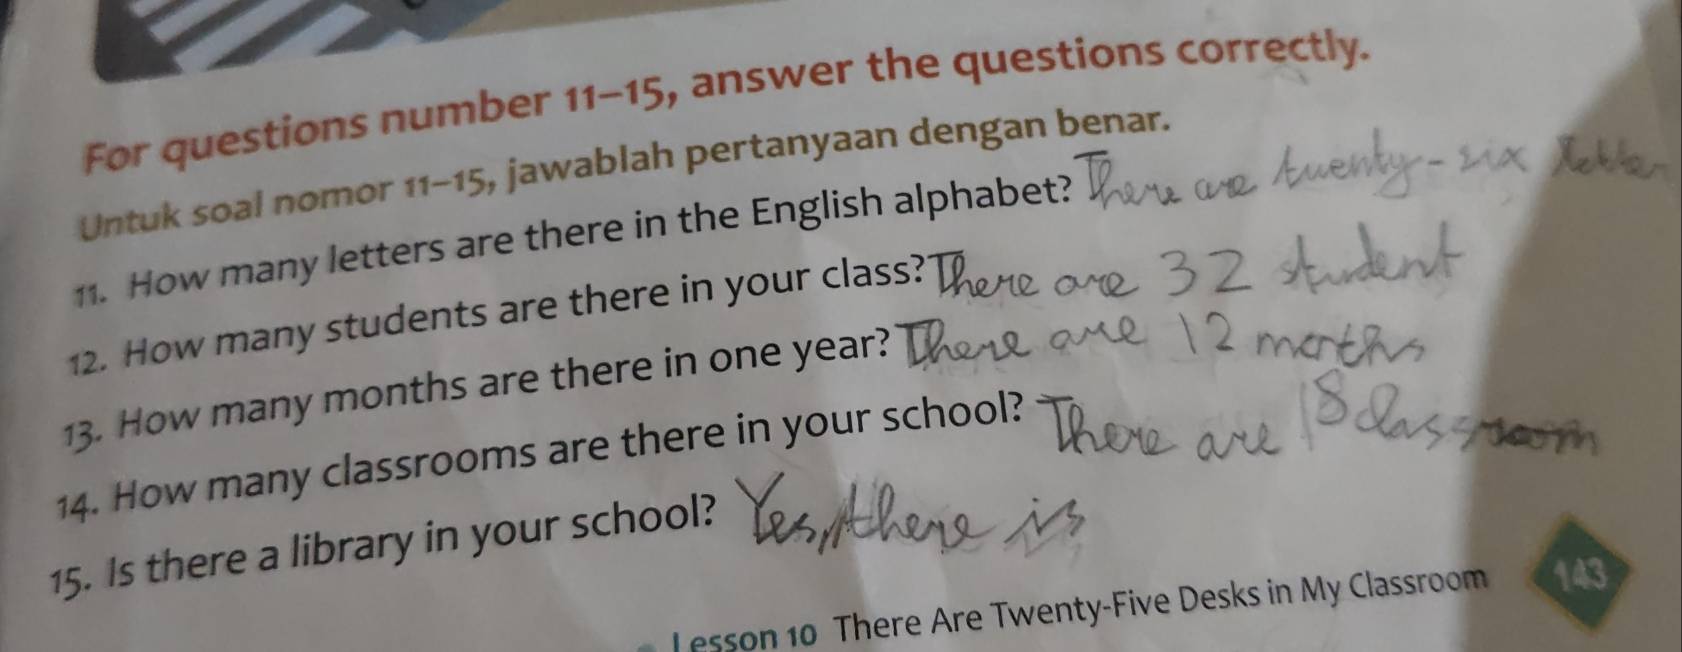 For questions number 11–15, answer the questions correctly.
Untuk soal nomor 11–15, jawablah pertanyaan dengan benar.
11. How many letters are there in the English alphabet? There are twenty-six letter
12. How many students are there in your class? There are 32 student
13. How many months are there in one year? There are 12 months
14. How many classrooms are there in your school? There are 18 classroom
15. Is there a library in your school? Yes, there is
Lesson 10 There Are Twenty-Five Desks in My Classroom 143